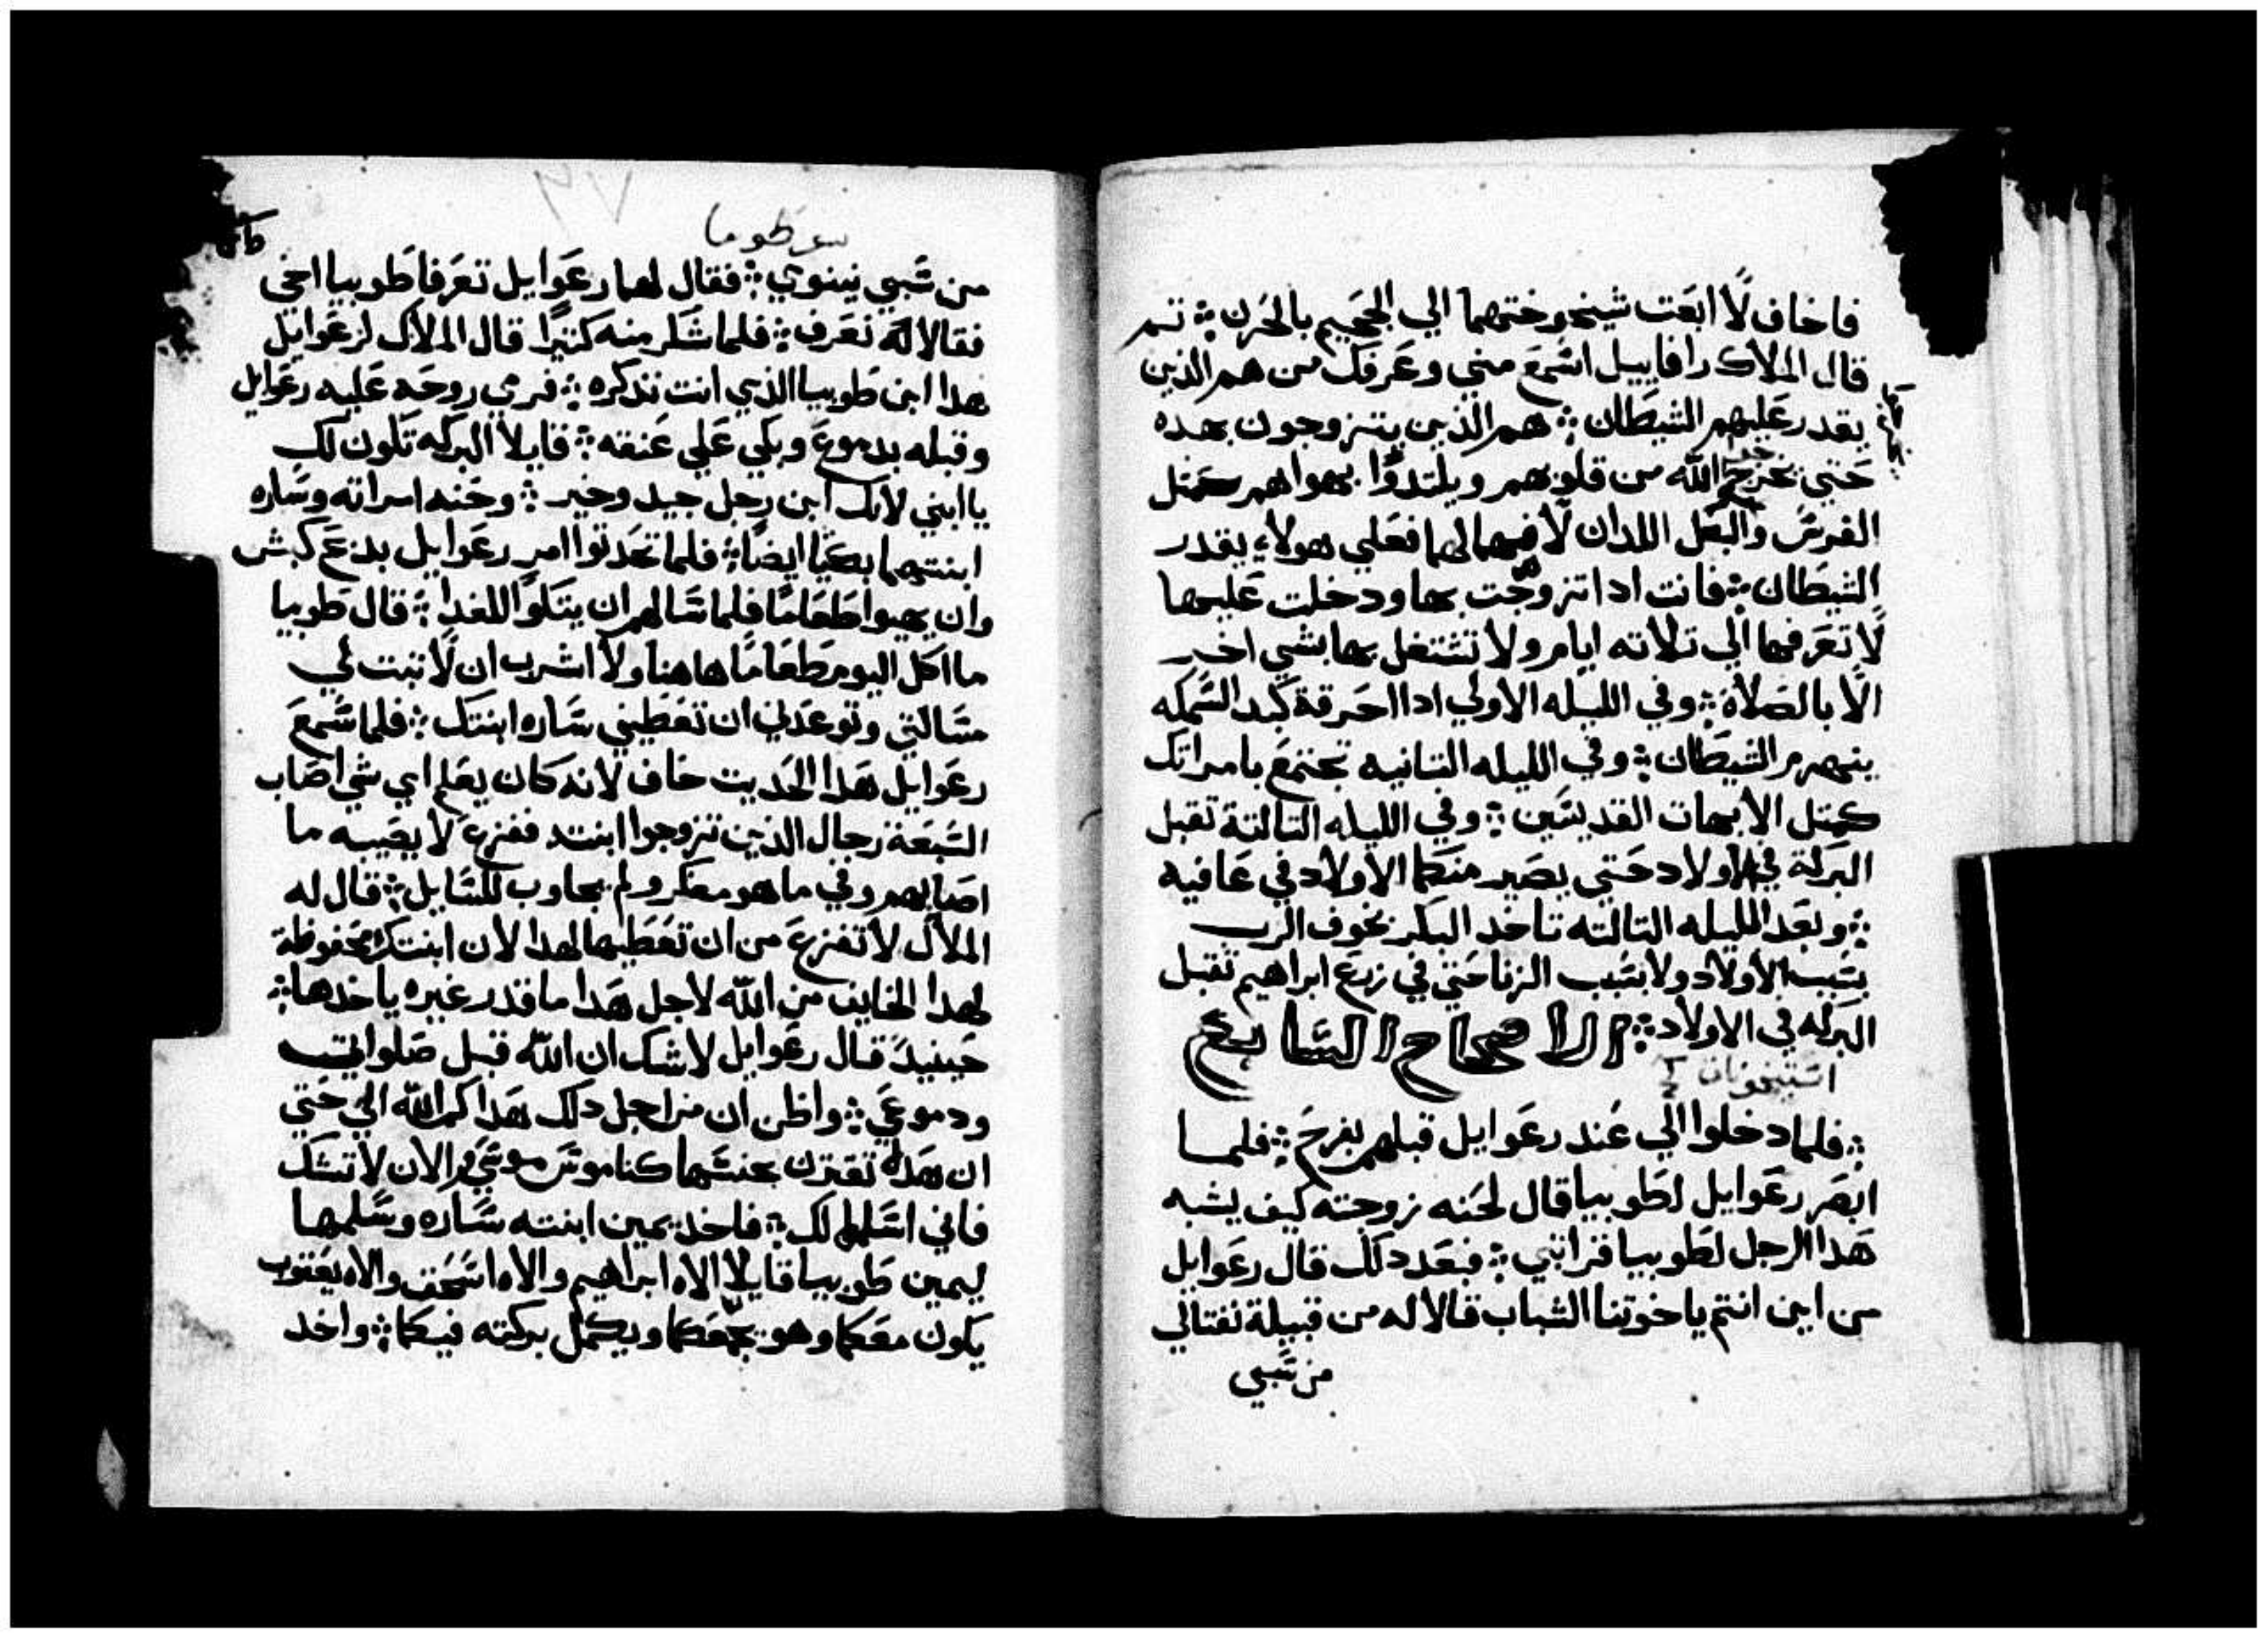 فاخاف لا ابعت شيخوختهما الي الجحيم بالحزن ؛ تم
قال الملاك رافاييل اسمع مني وعرفك من هم الذين
يقدر عليهم الشيطان ؛ هم الذين يتزوجون بهده
حتي يخرج الله من قلوبهم ويلتدوا بهواهم كمتل
الفرس والبغل اللدان لا فهما لهما فعلي هولاء يقدر
الشيطان ؛ فانت ادا تزوجت بها ودخلت عليها
لا تعرفها الي تلاته ايام ولا تشتغل بها بشي اخر
الا بالصلاة ؛ وفي الليله الاولي ادا احرقة كبد السمكه
ينهزم الشيطان ؛ وفي الليله التانيه تجتمع بامراتك
كمتل الابهات القديسين ؛ وفي الليله التالتة تقبل
البركة في الاولاد حتي يصير منكما الاولاد في عافيه
؛ وبعد الليله التالته تاخد البكر بخوف الرب
بسبب الاولاد ولا بسبب الزنا حتي في زرع ابراهيم تقبل
البركه في الاولاد ؛ الاصحاح السابع
؛ فلما دخلوا الي عند رعوايل قبلهم بفرح ؛ فلما
ابصر رعوايل لطوبيا قال لحنه زوجته كيف يشبه
هدا الرجل لطوبيا قرابتي ؛ فبعد دلك قال رعوايل
من اين انتم يا خوتنا الشباب قالا له من قبيلة نفتالي
من سبي
من سبي نينوي ؛ فقال لهما رعوايل تعرفا طوبيا اخي
فقالا له نعرف ؛ فلما شكر منه كتيرا قال الملاك لرعوايل
هدا ابن طوبيا الذي انت تذكره ؛ فرمي روحه عليه رعوايل
وقبله بدموع وبكي علي عنقه ؛ قايلا البركه تكون لك
يا ابني لانك ابن رجل جيد وخير ؛ وحنه امراته وساره
ابنتهما بكيا ايضا ؛ فلما تحدتوا امر رعوايل بدبح كبش
وان يهيوا طعاما فلما سالهم ان يتكوا للغدا ؛ قال طوبيا
ما اكل اليوم طعاما هاهنا ولا اشرب ان لا تتبت لي
مسالتي وتوعدني ان تعطيني ساره ابنتك ؛ فلما سمع
رعوايل هدا الحديت خاف لانه كان يعلم اي شي اصاب
السبعة رجال الذين تزوجوا ابنته ففزع لا يصيبه ما
اصابهم وفي ما هو مفكر ولم يجاوب للسايل ؛ قال له
الملاك لا تفزع من ان تعطيها لهدا لان ابنتك محفوظة
لهدا الخايف من الله لاجل هدا ما قدر غيره ياخدها ؛
حينيد قال رعوايل لا شك ان الله قبل صلواتي
ودموعي ؛ واظن ان من اجل دلك هداكم الله الي حتي
ان هده تقترن بجنسها كناموس موسي والان لا تشك
فاني اسلمها لك ؛ فاخد يمين ابنته ساره وسلمها
ليمين طوبيا قايلا الاه ابراهيم والاه اسحق والاه يعقوب
يكون معكما وهو يجمعكما ويكمل بركته فيكما ؛ واخد